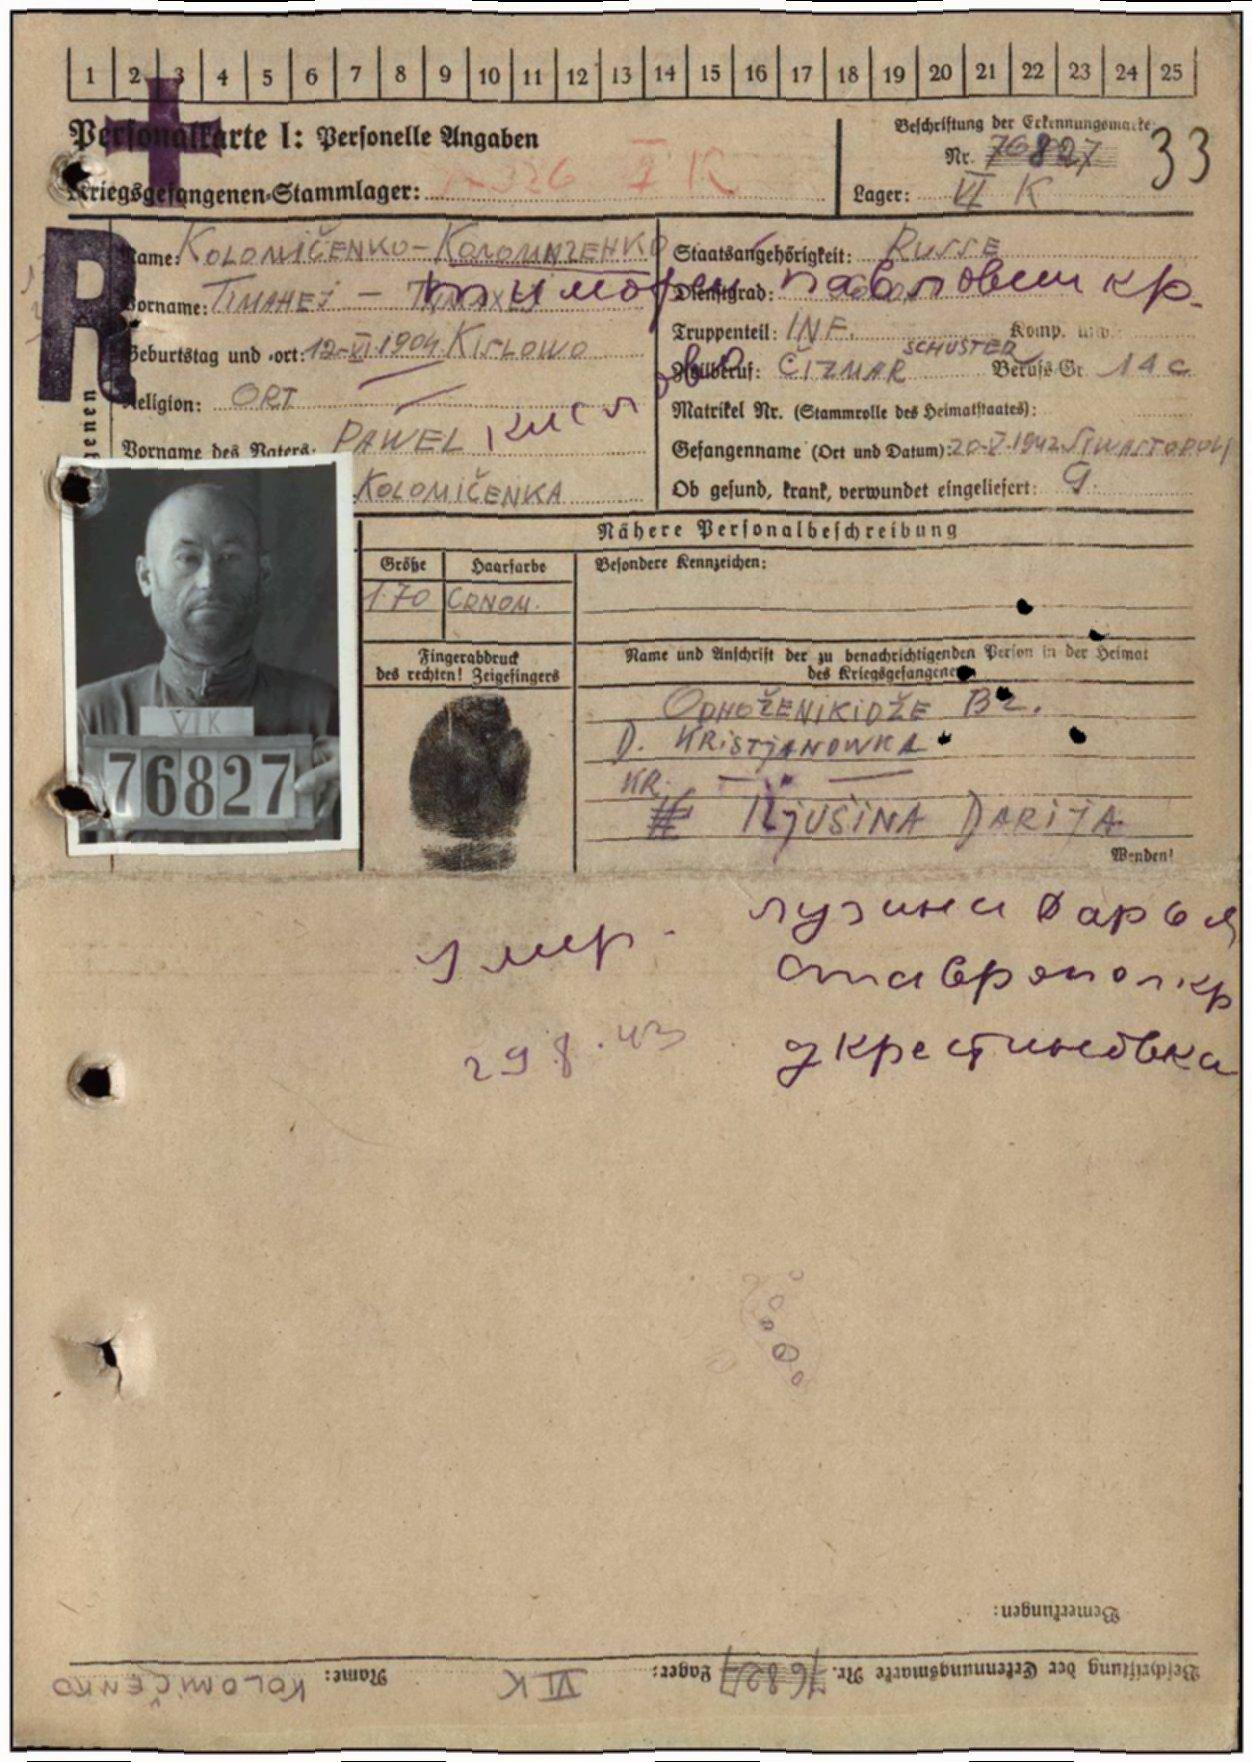 1 2 3 4 5 6 7 8 9 10 11 12 13 14 15 16 17 18 19 20 21 22 23 24 25
Personalkarte I: Personelle Angaben
Kriegsgefangenen-Stammlager: 326 K
Beschriftung der Erkennungsmarke
Nr. 76827
Lager: VI K
33
R
Name: KOLOMIČENKO –
Vorname: TIMAHEJ –
тимофеи павлович кр.
Geburtstag und -ort: 12-VI 1904 KISLOWO
Religion: ORT
Vorname des Vaters: PAWEL
KOLOMIČENKA
Staatsangehörigkeit: RUSSE
Dienstgrad:
Truppenteil: INF. Komp. usw.
Zivilberuf: ČIZMAR SCHUSTER Berufs-Gr. 14 c
Matrikel Nr. (Stammrolle des Heimatstaates):
Gefangennahme (Ort und Datum): 20-V-1942 SIWASTOPOLJ
Ob gesund, krank, verwundet eingeliefert: G.
genen
VIK
76827
Nähere Personalbeschreibung
Größe Haarfarbe Besondere Kennzeichen:
1.70 CRNOM.
Fingerabdruck
des rechten! Zeigefingers
Name und Anschrift der zu benachrichtigenden Person in der Heimat
des Kriegsgefangenen
ODHOŽENIKIDŽE
D. KRISTJANOWKA
KR.
ILJUŠINA DARIJA
Wenden!
Умер.
29 8.43
лузина Дарья
ставропол кр
д крестиновка
Bemerkungen:
Beschriftung der Erkennungsmarke Nr. 76827 Lager: VI K Name: KOLOMIČENKO